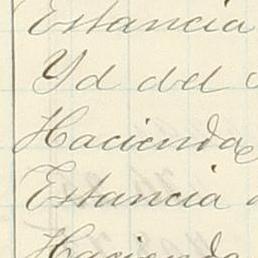 Estancia
Yd del
Hacienda
Estancia
Hacienda